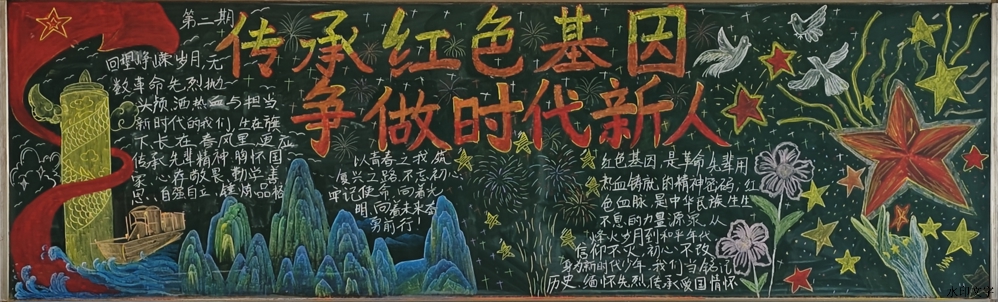 第二期
传承红色基因
争做时代新人
回望峥嵘岁月,无
数革命先烈抛
头颅洒热血与担当
新时代的我们,生在旗
下长在春风里,更应
传承先辈精神,胸怀国
家心存敬畏,勤学善
思,自强自立,锤炼品格
以青春之我,筑
复兴之路,不忘初心
牢记使命,向着光
明,向着未来奋
勇前行!
红色基因,是革命先辈用
热血铸就的精神密码,红
色血脉,是中华民族生生
不息的力量源泉。从
烽火岁月到和平年代
信仰不变,初心不改
身为新时代少年,我们当铭记
历史,缅怀先烈传承爱国情怀
水印文字